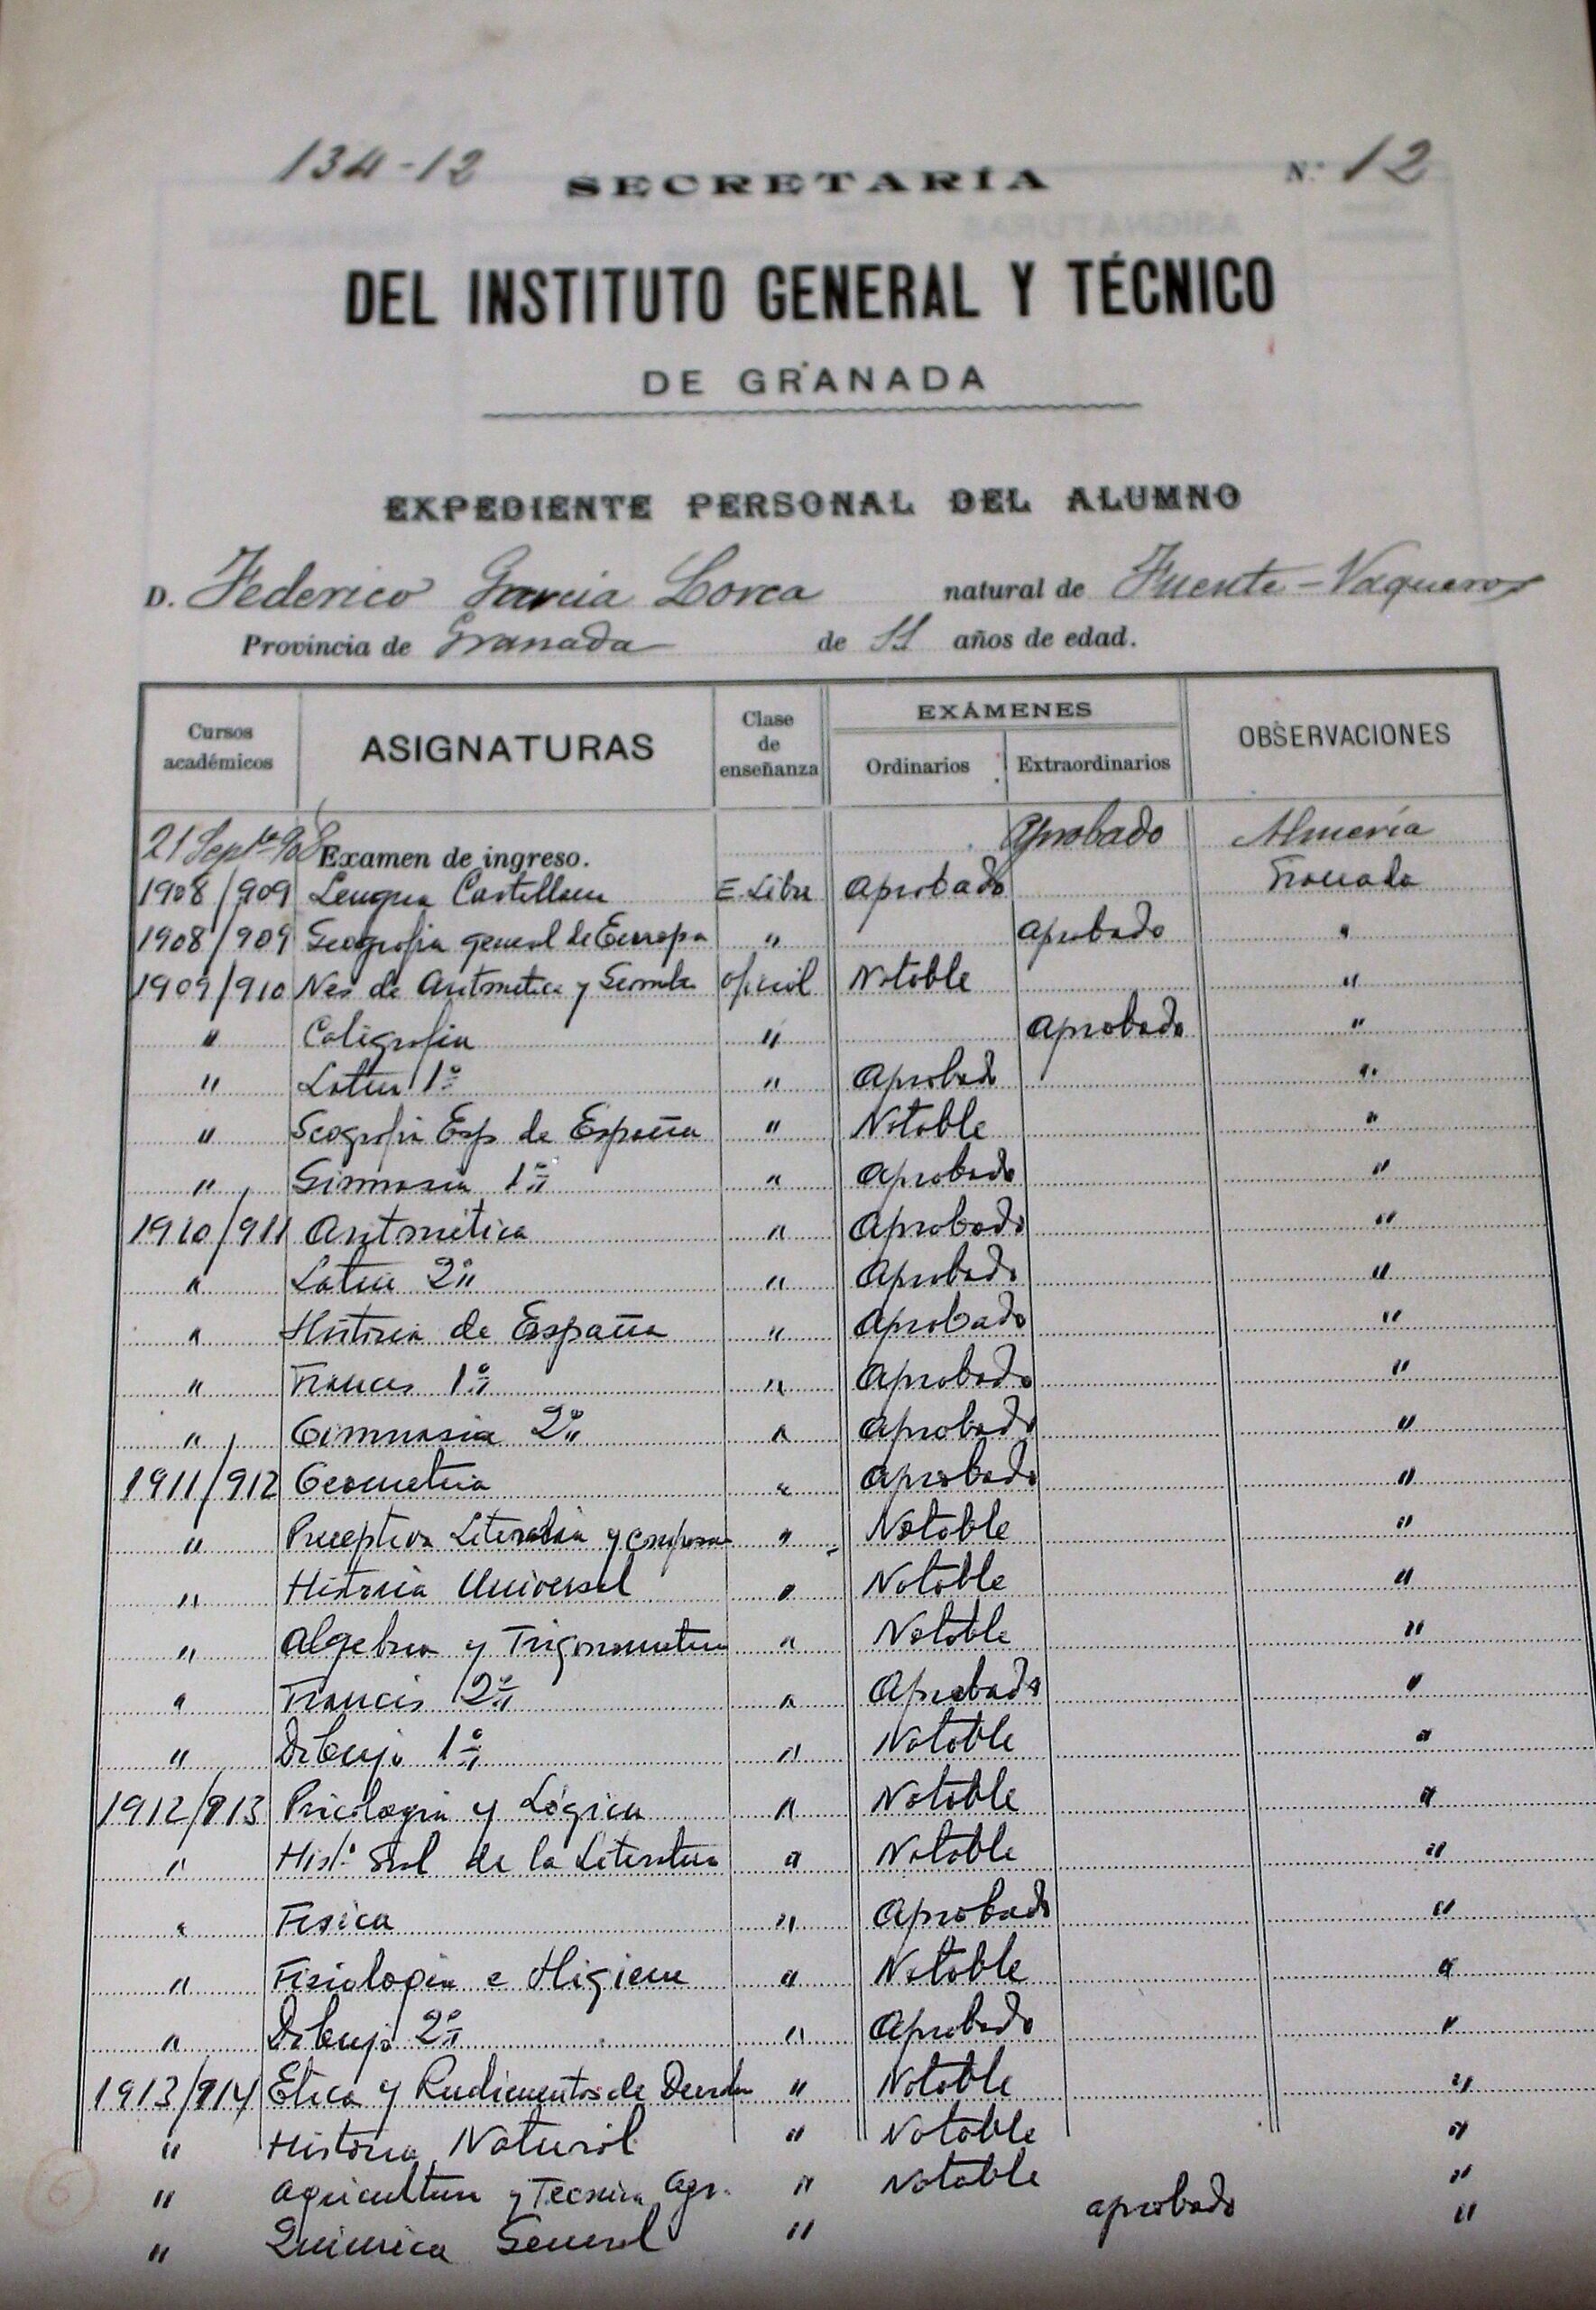 134-12 SECRETARÍA N.º 12
DEL INSTITUTO GENERAL Y TÉCNICO
DE GRANADA
EXPEDIENTE PERSONAL DEL ALUMNO
D. Federico Garcia Lorca natural de Fuente-Vaqueros
Provincia de Granada de 11 años de edad.
Cursos académicos ASIGNATURAS Clase de enseñanza EXÁMENES Ordinarios Extraordinarios OBSERVACIONES
21 Septbre 908 Examen de ingreso. Aprobado Almería
1908/909 Lengua Castellana E. Libre Aprobado Granada
1908/909 Geografia general de Europa " Aprobado "
1909/910 Nes de Aritmetica y Geomta Oficial Notable "
" Caligrafia " Aprobado "
" Latin 1º " Aprobado "
" Geografia Esp de España " Notable "
" Gimnasia 1º " Aprobado "
1910/911 Aritmética " Aprobado "
" Latin 2º " Aprobado "
" Historia de España " Aprobado "
" Frances 1º " Aprobado "
" Gimnasia 2º " Aprobado "
1911/912 Geometria " Aprobado "
" Preceptiva Literaria y " Notable "
" Historia Universal " Notable "
" Algebra y Trigonometria " Notable "
" Francés 2º " Aprobado "
" Dibujo 1º " Notable "
1912/913 Psicologia y Lógica " Notable "
" Histª Gral de la Literatura " Notable "
" Fisica " Aprobado "
" Fisiologia e Higiene " Notable "
" Dibujo 2º " Aprobado "
1913/914 Etica y Rudimentos de Derecho " Notable "
" Historia Natural " Notable "
" Agricultura y Tecnica Agr. " Notable "
" Quimica General " aprobado "